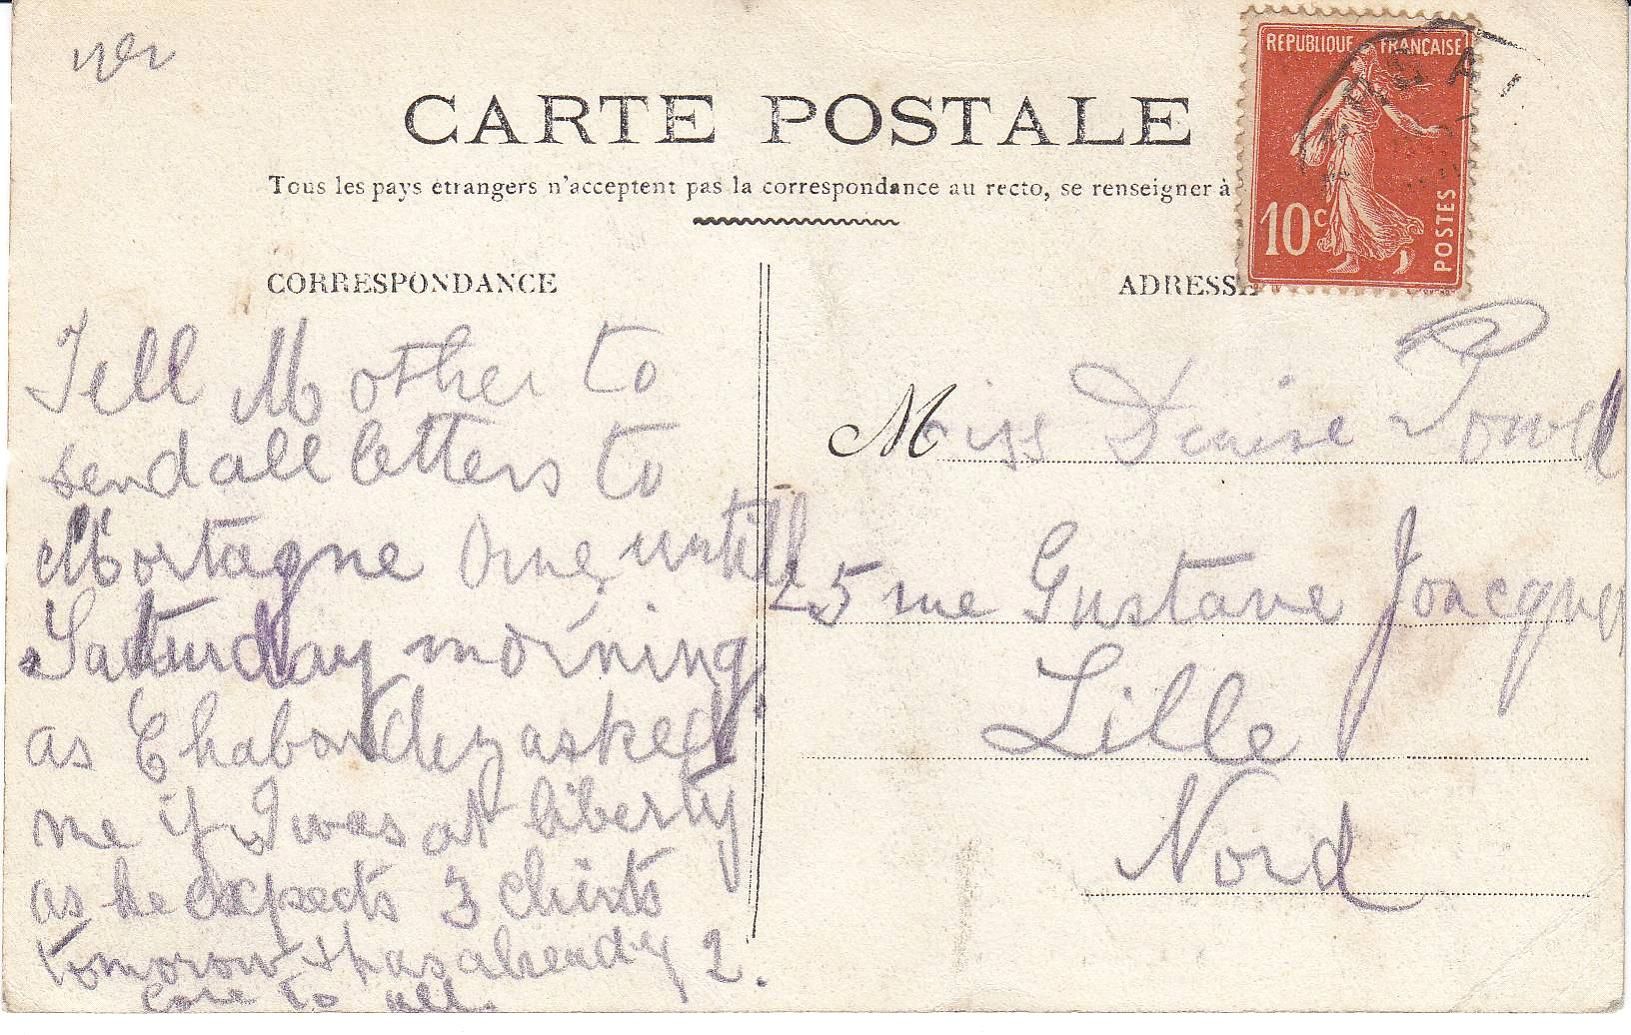 CARTE POSTALE
Tous les pays étrangers n'acceptent pas la correspondance au recto, se renseigner à
REPUBLIQUE FRANÇAISE
10c
POSTES
CORRESPONDANCE
Tell Mother to
send all letters to
Mortagne Orne, untill
Saturday morning
as asked
me if I was at liberty
as he expects 3 clients
tomorow & has already 2.
Love to all.
ADRESSE
Miss Denise Powell
25 rue Gustave
Lille
Nord